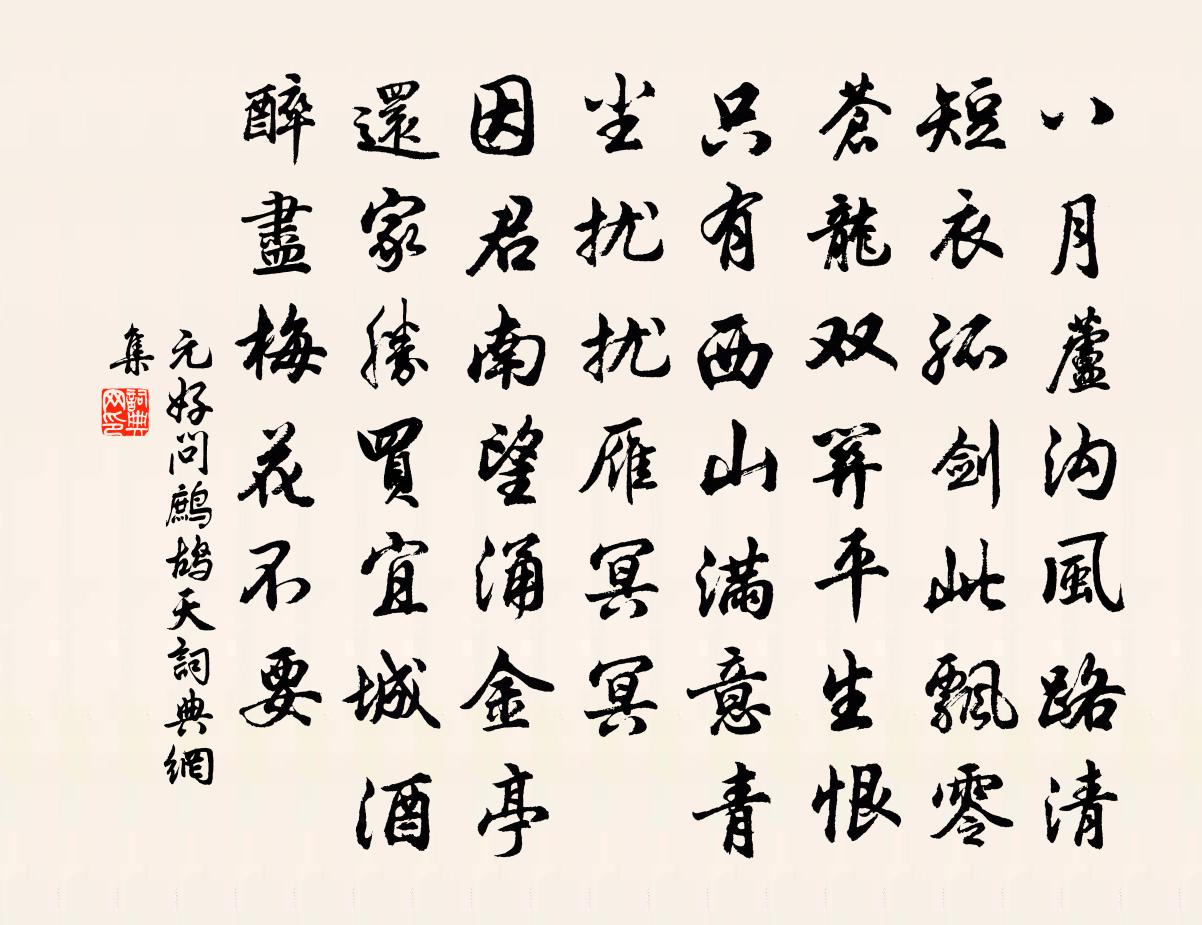 八月蘆沟風路清
短衣孤剑此飄零
蒼龍双闕平生恨
只有西山滿意青
尘扰扰
雁冥冥
因君南望涌金亭
還家勝買宜城酒
醉盡梅花不要
元好问鹧鸪天詞典網
集
詞典网印